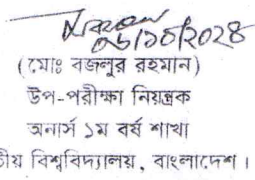 ০৬/১০/২০২৪
(মোঃ বজলুর রহমান)
উপ-পরীক্ষা নিয়ন্ত্রক
অনার্স ১ম বর্ষ শাখা
বিশ্ববিদ্যালয়, বাংলাদেশ।